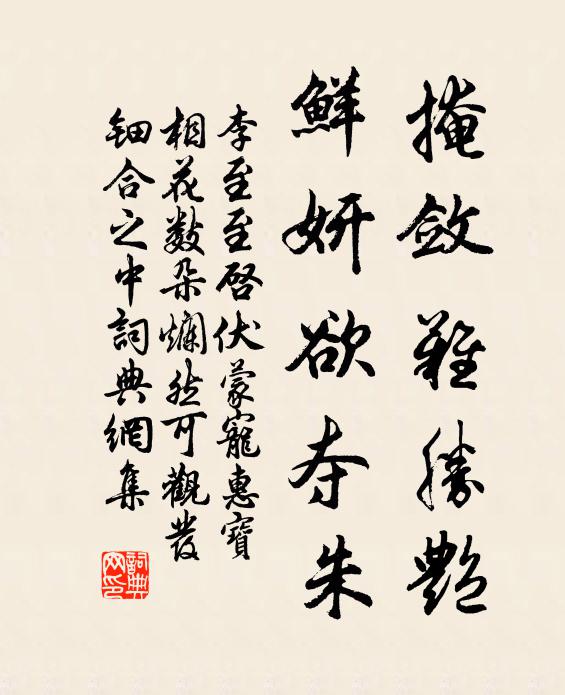 掩斂難勝艷
鮮妍欲夺朱
李至至啓伏蒙寵惠寶
相花数朶爛然可觀發
鈿合之中詞典網集
詞典网印